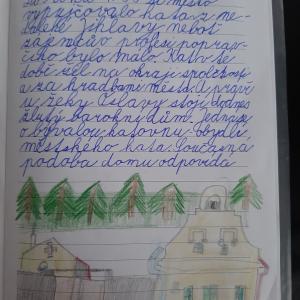 si město
vypůjčovalo kata z ne-
daleké Jihlavy, neboť
zájemců o profesi poprav-
čího bylo málo. Katův se
dobí žel na okraji společnosti
a za hradbami města. U pravé
u řeky Oslavy stojí dodnes
žlutý barokní dům. Jedná se
o bývalou katovnu - obydlí
městského kata. Současná
podoba domu odpovídá